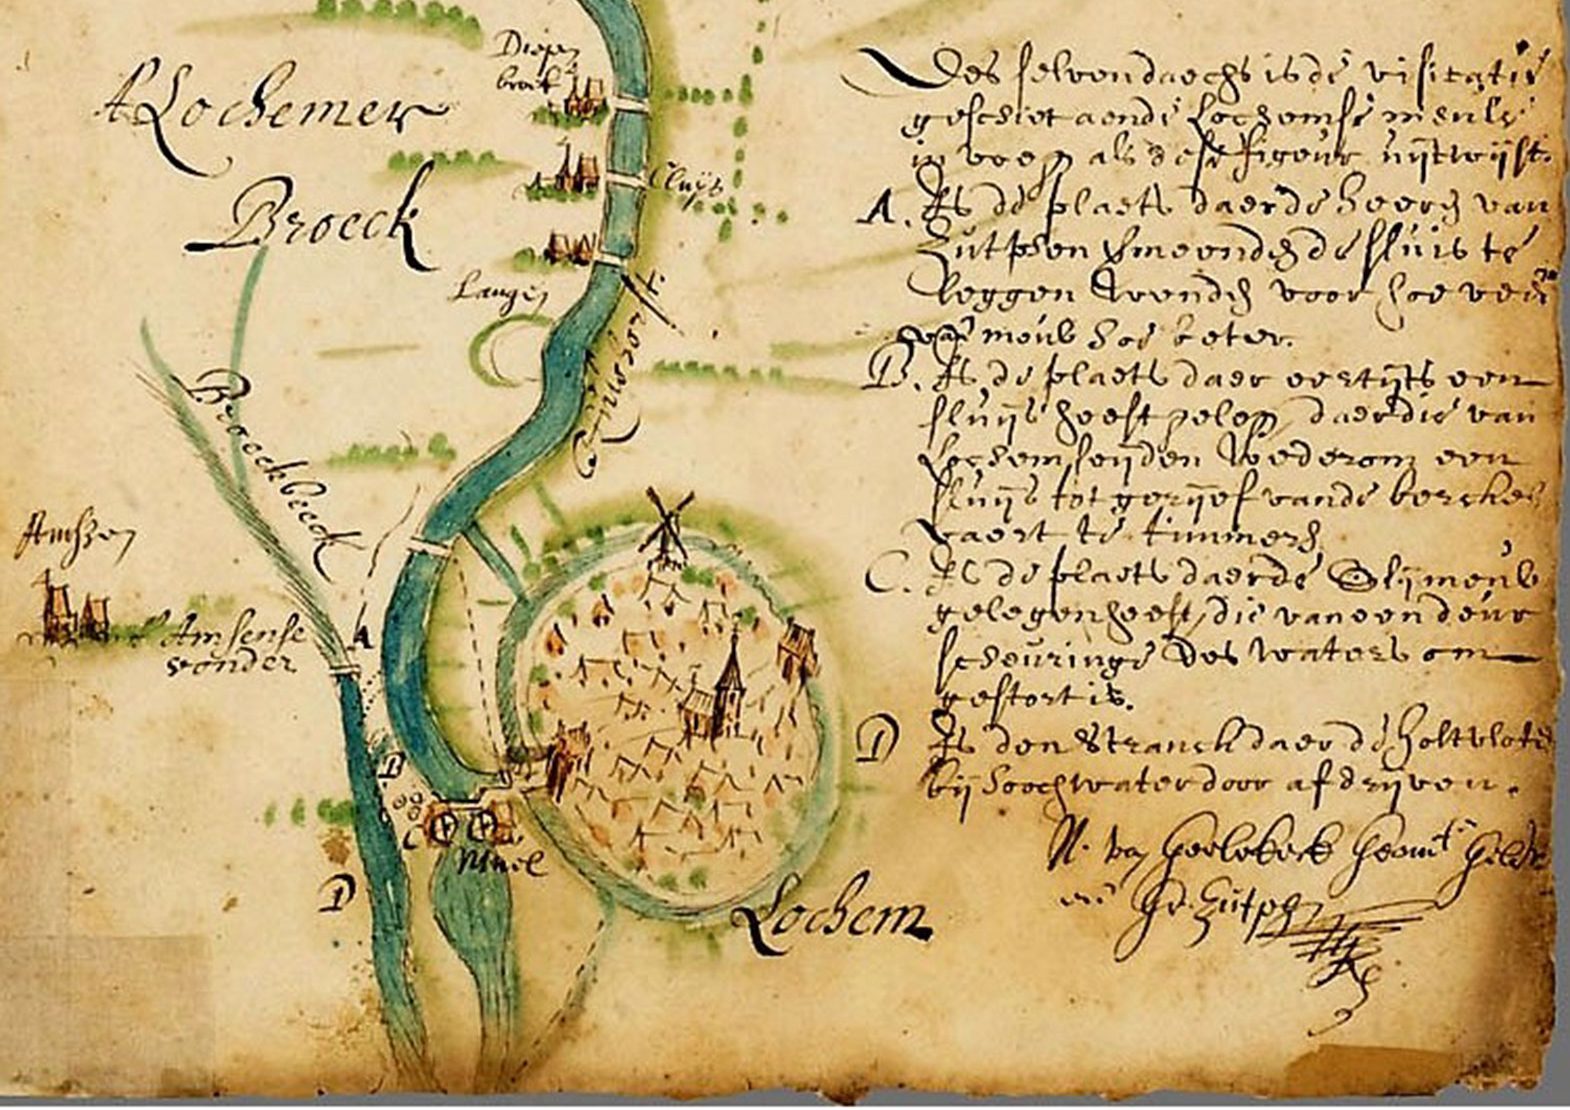 't Lochemer
Broeck
Diepen
broek
Cluijt
Langen
Broeckbeeck
Amssen
Amsense
vonder
A
B
C
Muel
D
Lochem
Des selven daechs is de visitatie
geschiet aende Lochemse meule
in voegen als dese figeur uijtwijst.
A. Is de plaets daer de heeren van
Zutphen meenden de sluis te
leggen
meule hoe beter.
B. Is de plaets daer eertijts een
sluijs heeft gelegen, daer die van
Lochem seijden wederom een
sluijs tot gerijef vande berckes
vaert te timmeren
C. Is de plaets daer de Olijmeule
gelegen heeft, die van een deur
scheuringe des waters om
gestort is.
D Is den Stranck daer de holtvlote
bij hooch water door af drijven.
N. van Geelkerck Geomt. Gelr
en Gr. Zutphen